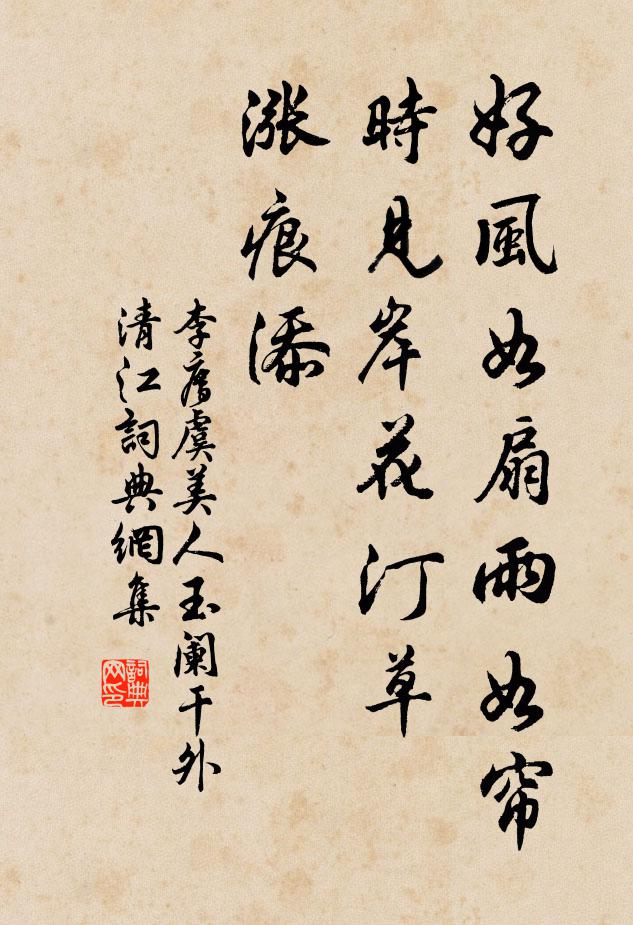 好風如扇雨如帘
時見岸花汀草
漲痕添
李廌虞美人玉闌干外
清江詞典網集
詞典网印